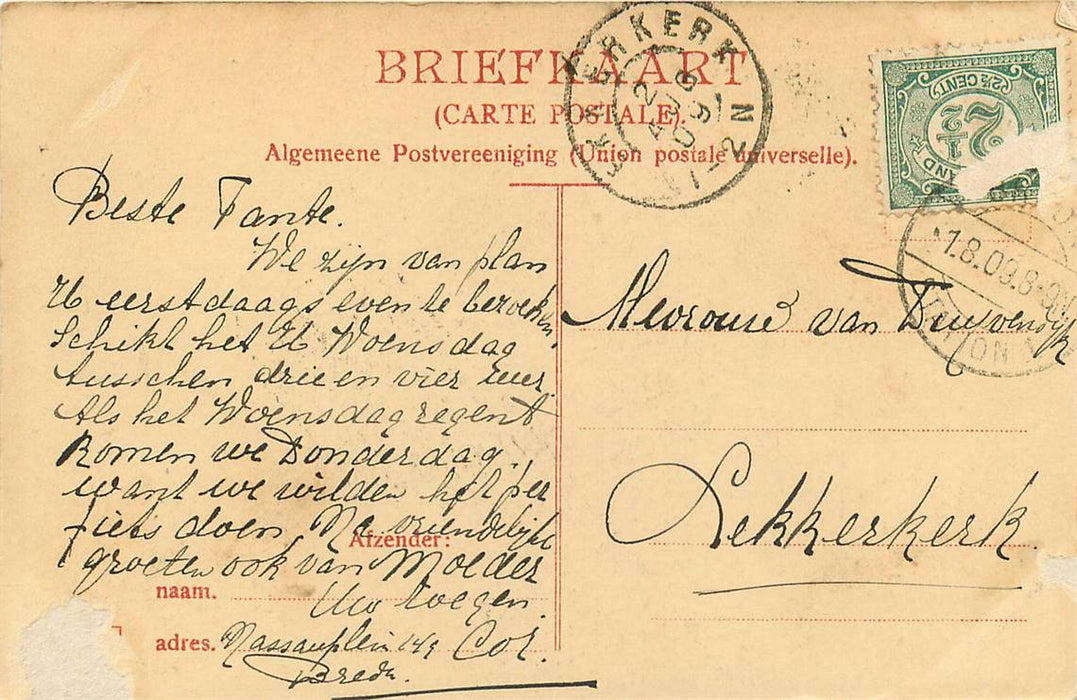 BRIEFKAART
(CARTE POSTALE).
Algemeene Postvereeniging (Union postale universelle).
KERKERK
2
AUG
09
1-2N
2½ CENT
2½
1.8.09.8-9
STATION
Beste Tante.
We zijn van plan
U eerstdaags even te bezoeken.
Schikt het U Woensdag
tusschen drie en vier uur.
Als het Woensdag regent
komen we Donderdag,
want we wilden het per
fiets doen. Na vriendelijke
groeten ook van Moeder
Uw toegen.
Cor.
Afzender:
naam.
adres. Nassauplein
Breda.
Mevrouw van Duyvendijk
Lekkerkerk.